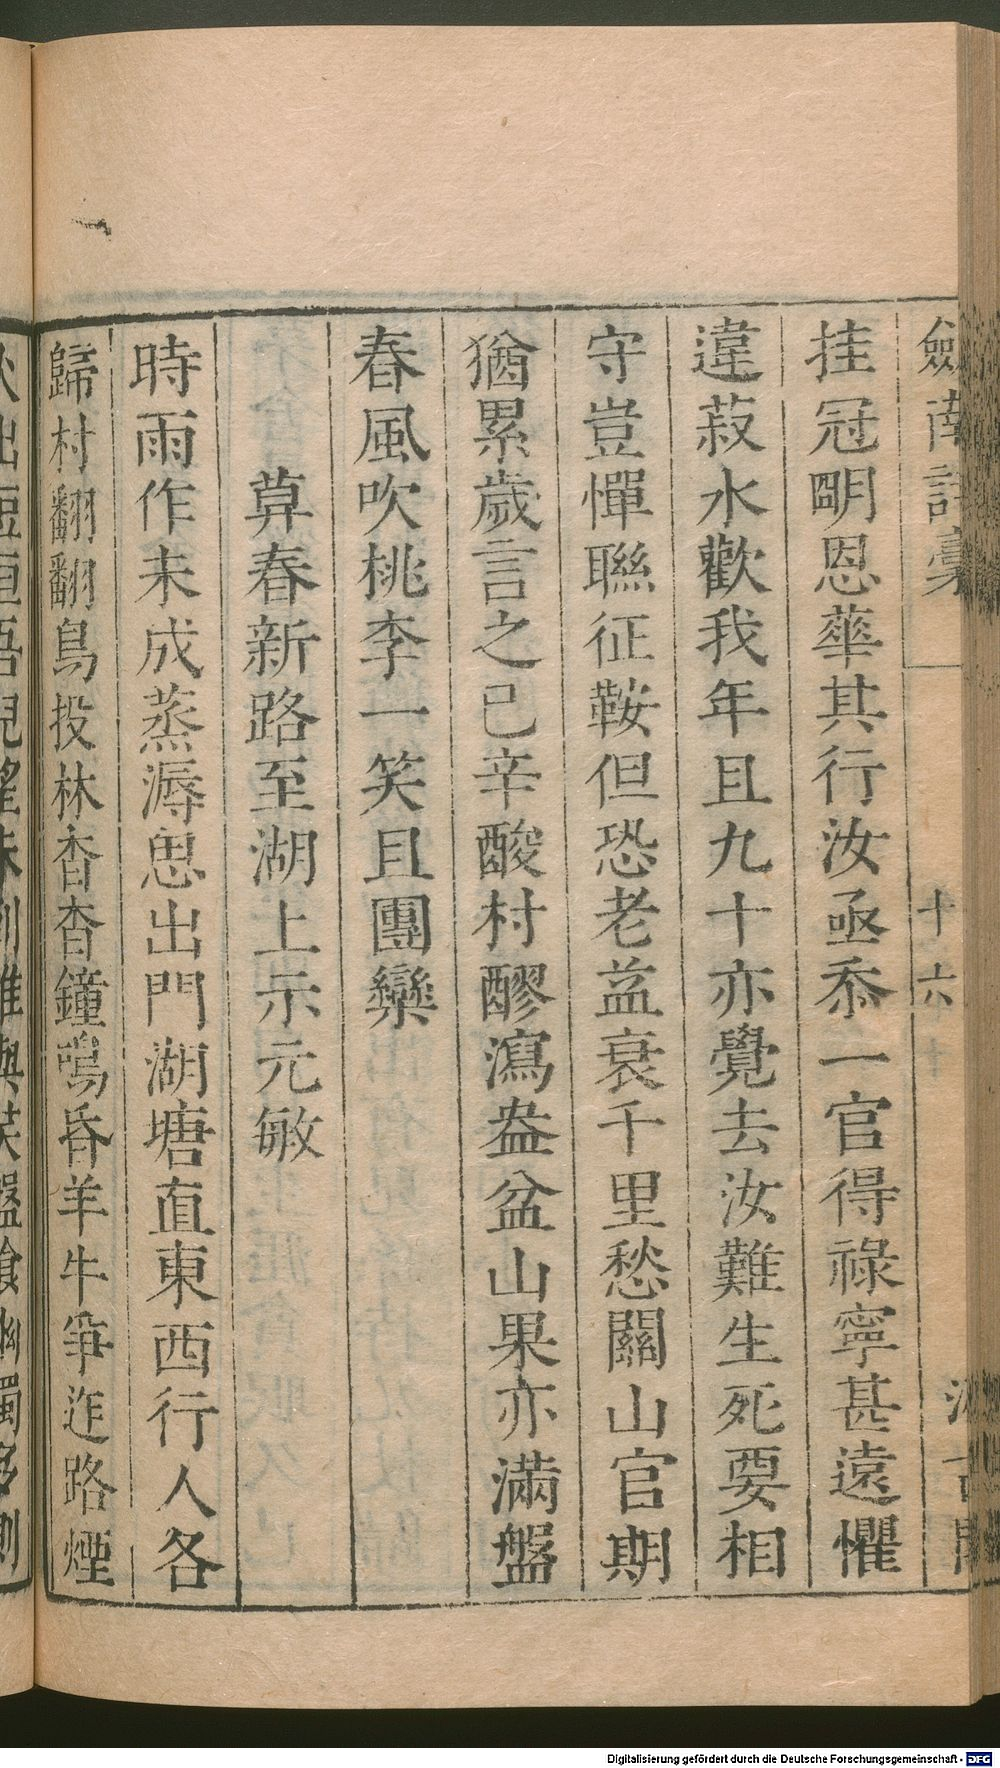 劍南詩稾
十六
挂冠朙恩華其行汝亟忝一官得祿寧甚遠懼
違菽水歡我年且九十亦覺去汝難生死要相
守豈憚聯征鞍但恐老益衰千里愁關山官期
猶累歲言之已辛酸村醪瀉盎盆山果亦滿盤
春風吹桃李一笑且團欒
莫春新路至湖上示元敏
時雨作未成蒸溽思出門湖塘直東西行人各
歸村翻翻鳥投林杳杳鐘鳴昏羊牛爭迮路煙
Digitalisierung gefördert durch die Deutsche Forschungsgemeinschaft - DFG